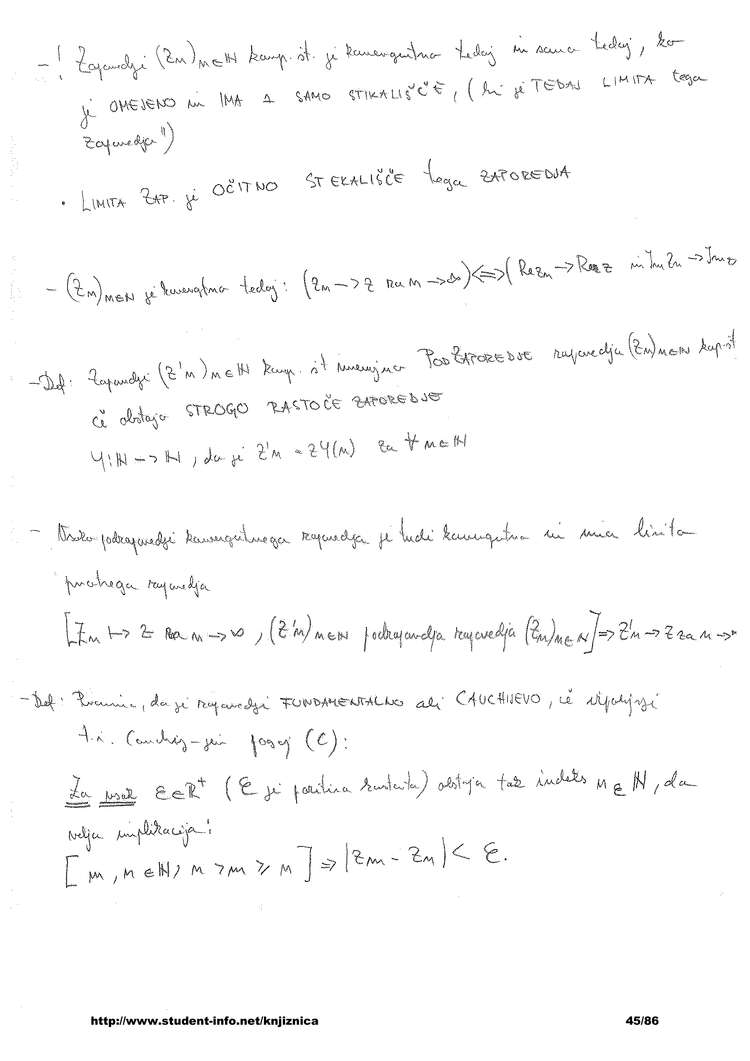 - ! Zaporedje (Zn)n∈ℕ komp. št. je konvergentno tedaj in samo tedaj, ko
je OMEJENO in IMA 1 SAMO STIKALIŠČE, (ki je TEDAJ LIMITA tega
zaporedja")
• LIMITA ZAP. je OČITNO STEKALIŠČE tega ZAPOREDJA
- (Zn)n∈N je konvergentno tedaj: (Zn -> Z za n -> ∞) <=> (Re Zn -> Re Z in Im Zn -> Im Z
- Def: Zaporedje (Z'n)n∈ℕ komp. št imenujemo PODZAPOREDJE zaporedja (Zn)n∈ℕ kop. št
če obstaja STROGO RASTOČE ZAPOREDJE
φ: ℕ -> ℕ, da je Z'n = Zφ(n) za ∀ n∈ℕ
- Vsako podzaporedje konvergentnega zaporedja je tudi konvergentno in ima limito
prvotnega zaporedja
[Zn -> Z za n -> ∞, (Z'n)n∈N podzaporedje zaporedja (Zn)n∈N] => Z'n -> Z za n ->
- Def: Pravimo, da je zaporedje FUNDAMENTALNO ali CAUCHIJEVO, če izpolnjuje
t.i. Cauchy-jev pogoj (C):
Za vsak ε∈ℝ⁺ (ε je pozitivna konstanta) obstaja tak indeks n∈ℕ, da
velja implikacija:
[m, n∈ℕ, n > m ≥ n] => |Zm - Zn| < ε.
http://www.student-info.net/knjiznica 45/86